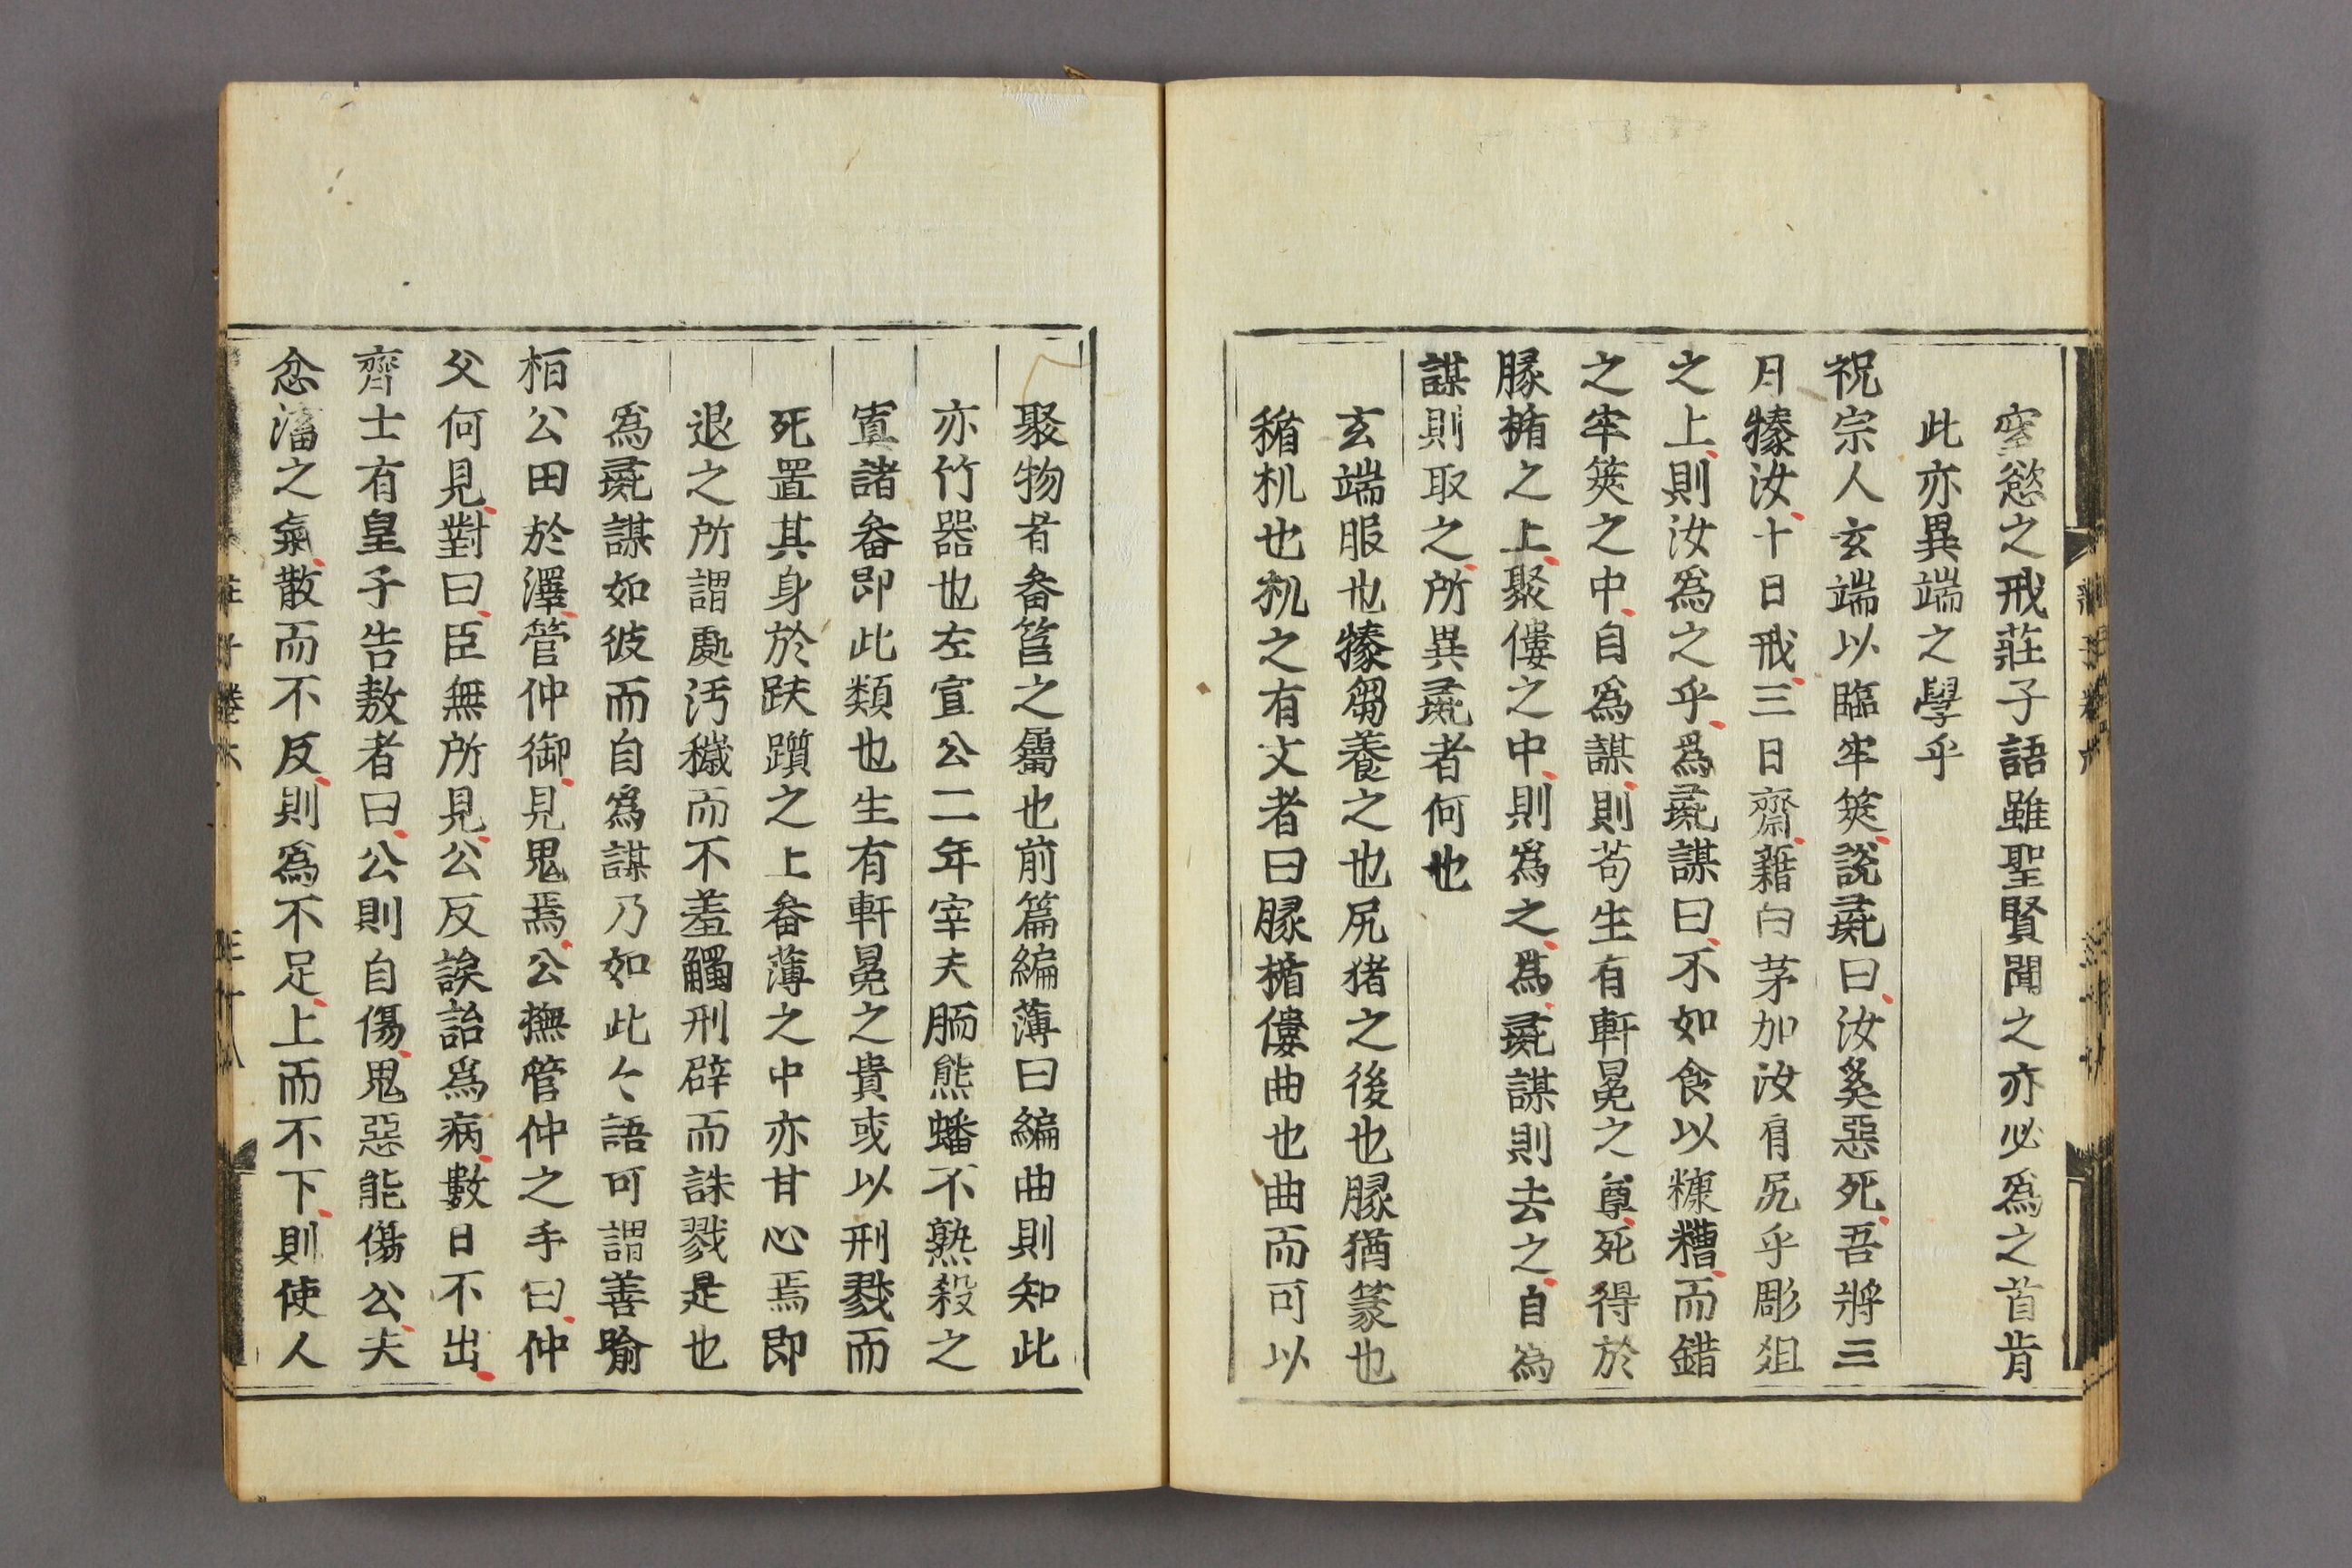 窒慾之戒莊子語雖聖賢聞之亦必爲之首肯
此亦異端之學乎
祝宗人玄端以臨牢筴說彘曰汝奚惡死吾將三
月㹖汝十日戒三日齋藉白茅加汝肩尻乎彫俎
之上則汝爲之乎爲彘謀曰不如食以糠糟而錯
之牢筴之中自爲謀則苟生有軒冕之尊死得於
腞楯之上聚僂之中則爲之爲彘謀則去之自爲
謀則取之所異彘者何也
玄端服也㹖芻養之也尻猪之後也腞猶篆也
楯机也机之有文者曰腞楯僂曲也曲而可以
聚物者畚筥之屬也前篇編薄曰編曲則知此
亦竹器也左宣公二年宰夫胹熊蹯不熟殺之
寘諸畚即此類也生有軒冕之貴或以刑戮而
死置其身於趺躓之上畚薄之中亦甘心焉即
退之所謂處汚穢而不羞觸刑辟而誅戮是也
爲彘謀如彼而自爲謀乃如此々語可謂善喻
桓公田於澤管仲御見鬼焉公撫管仲之手曰仲
父何見對曰臣無所見公反誒詒爲病數日不出
齊士有皇子告敖者曰公則自傷鬼惡能傷公夫
忿滀之氣散而不反則爲不足上而不下則使人
莊子卷六